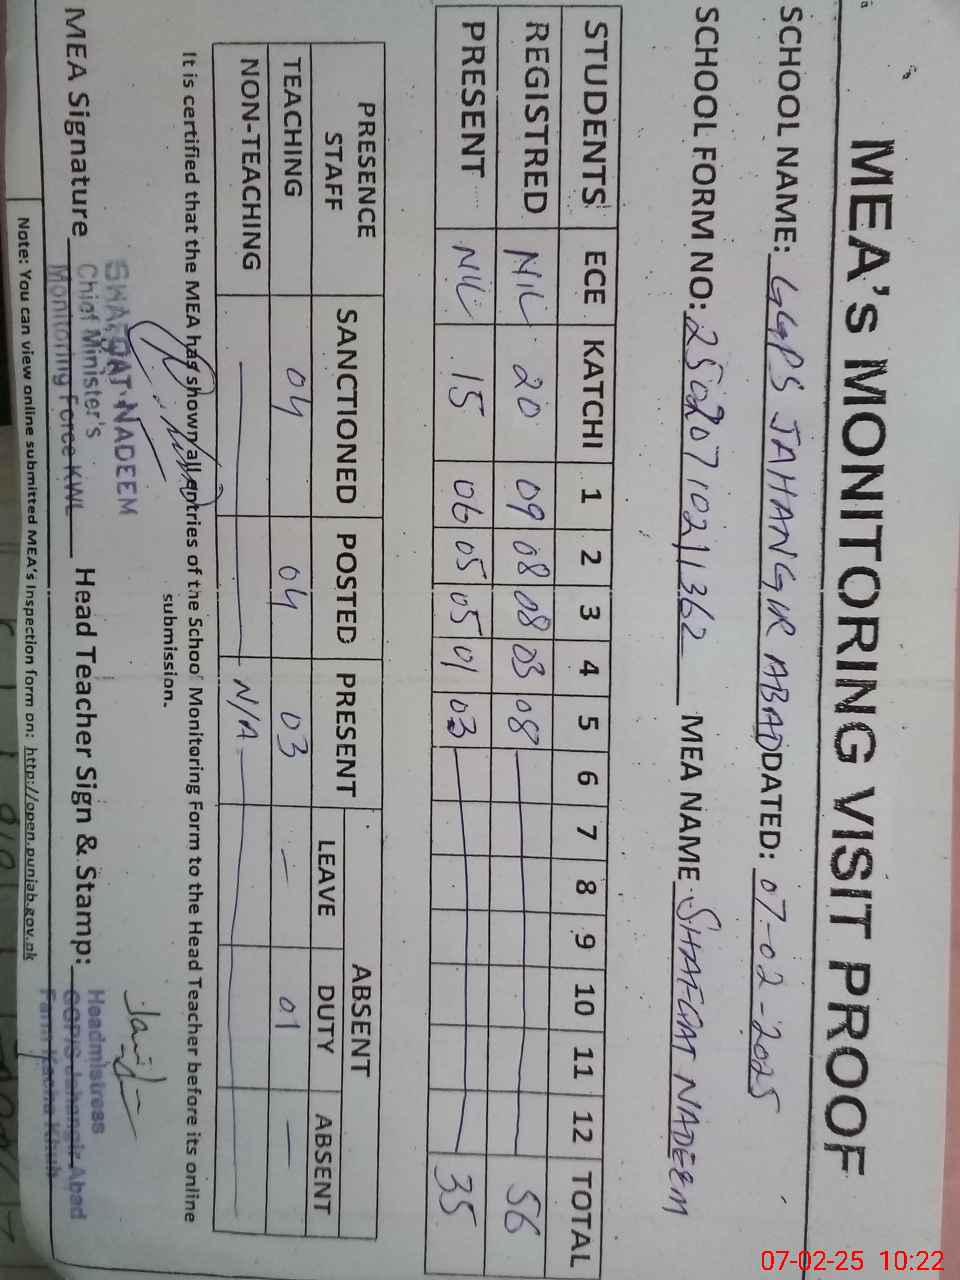 MEA'S MONITORING VISIT PROOF
SCHOOL NAME: GGPS JAHANGIR ABAD DATED: 07-02-2025
SCHOOL FORM NO: 250207102211362 MEA NAME SHAFQAT NADEEM
STUDENTS ECE KATCHI 1 2 3 4 5 6 7 8 9 10 11 12 TOTAL
REGISTRED NIL 20 09 08 08 03 08 56
PRESENT NIL 15 06 05 05 01 03 35
PRESENCE STAFF SANCTIONED POSTED PRESENT ABSENT
LEAVE DUTY ABSENT
TEACHING 04 04 03 — 01 —
NON-TEACHING N/A
It is certified that the MEA has shown all entries of the School Monitoring Form to the Head Teacher before its online
submission.
MEA Signature Head Teacher Sign & Stamp:
SHAFQAT NADEEM
Chief Minister's
Monitoring Force KWL
Headmistress
GGPS Jahangir Abad
Note: You can view online submitted MEA's Inspection form on: http://open.punjab.gov.pk
07-02-25 10:22